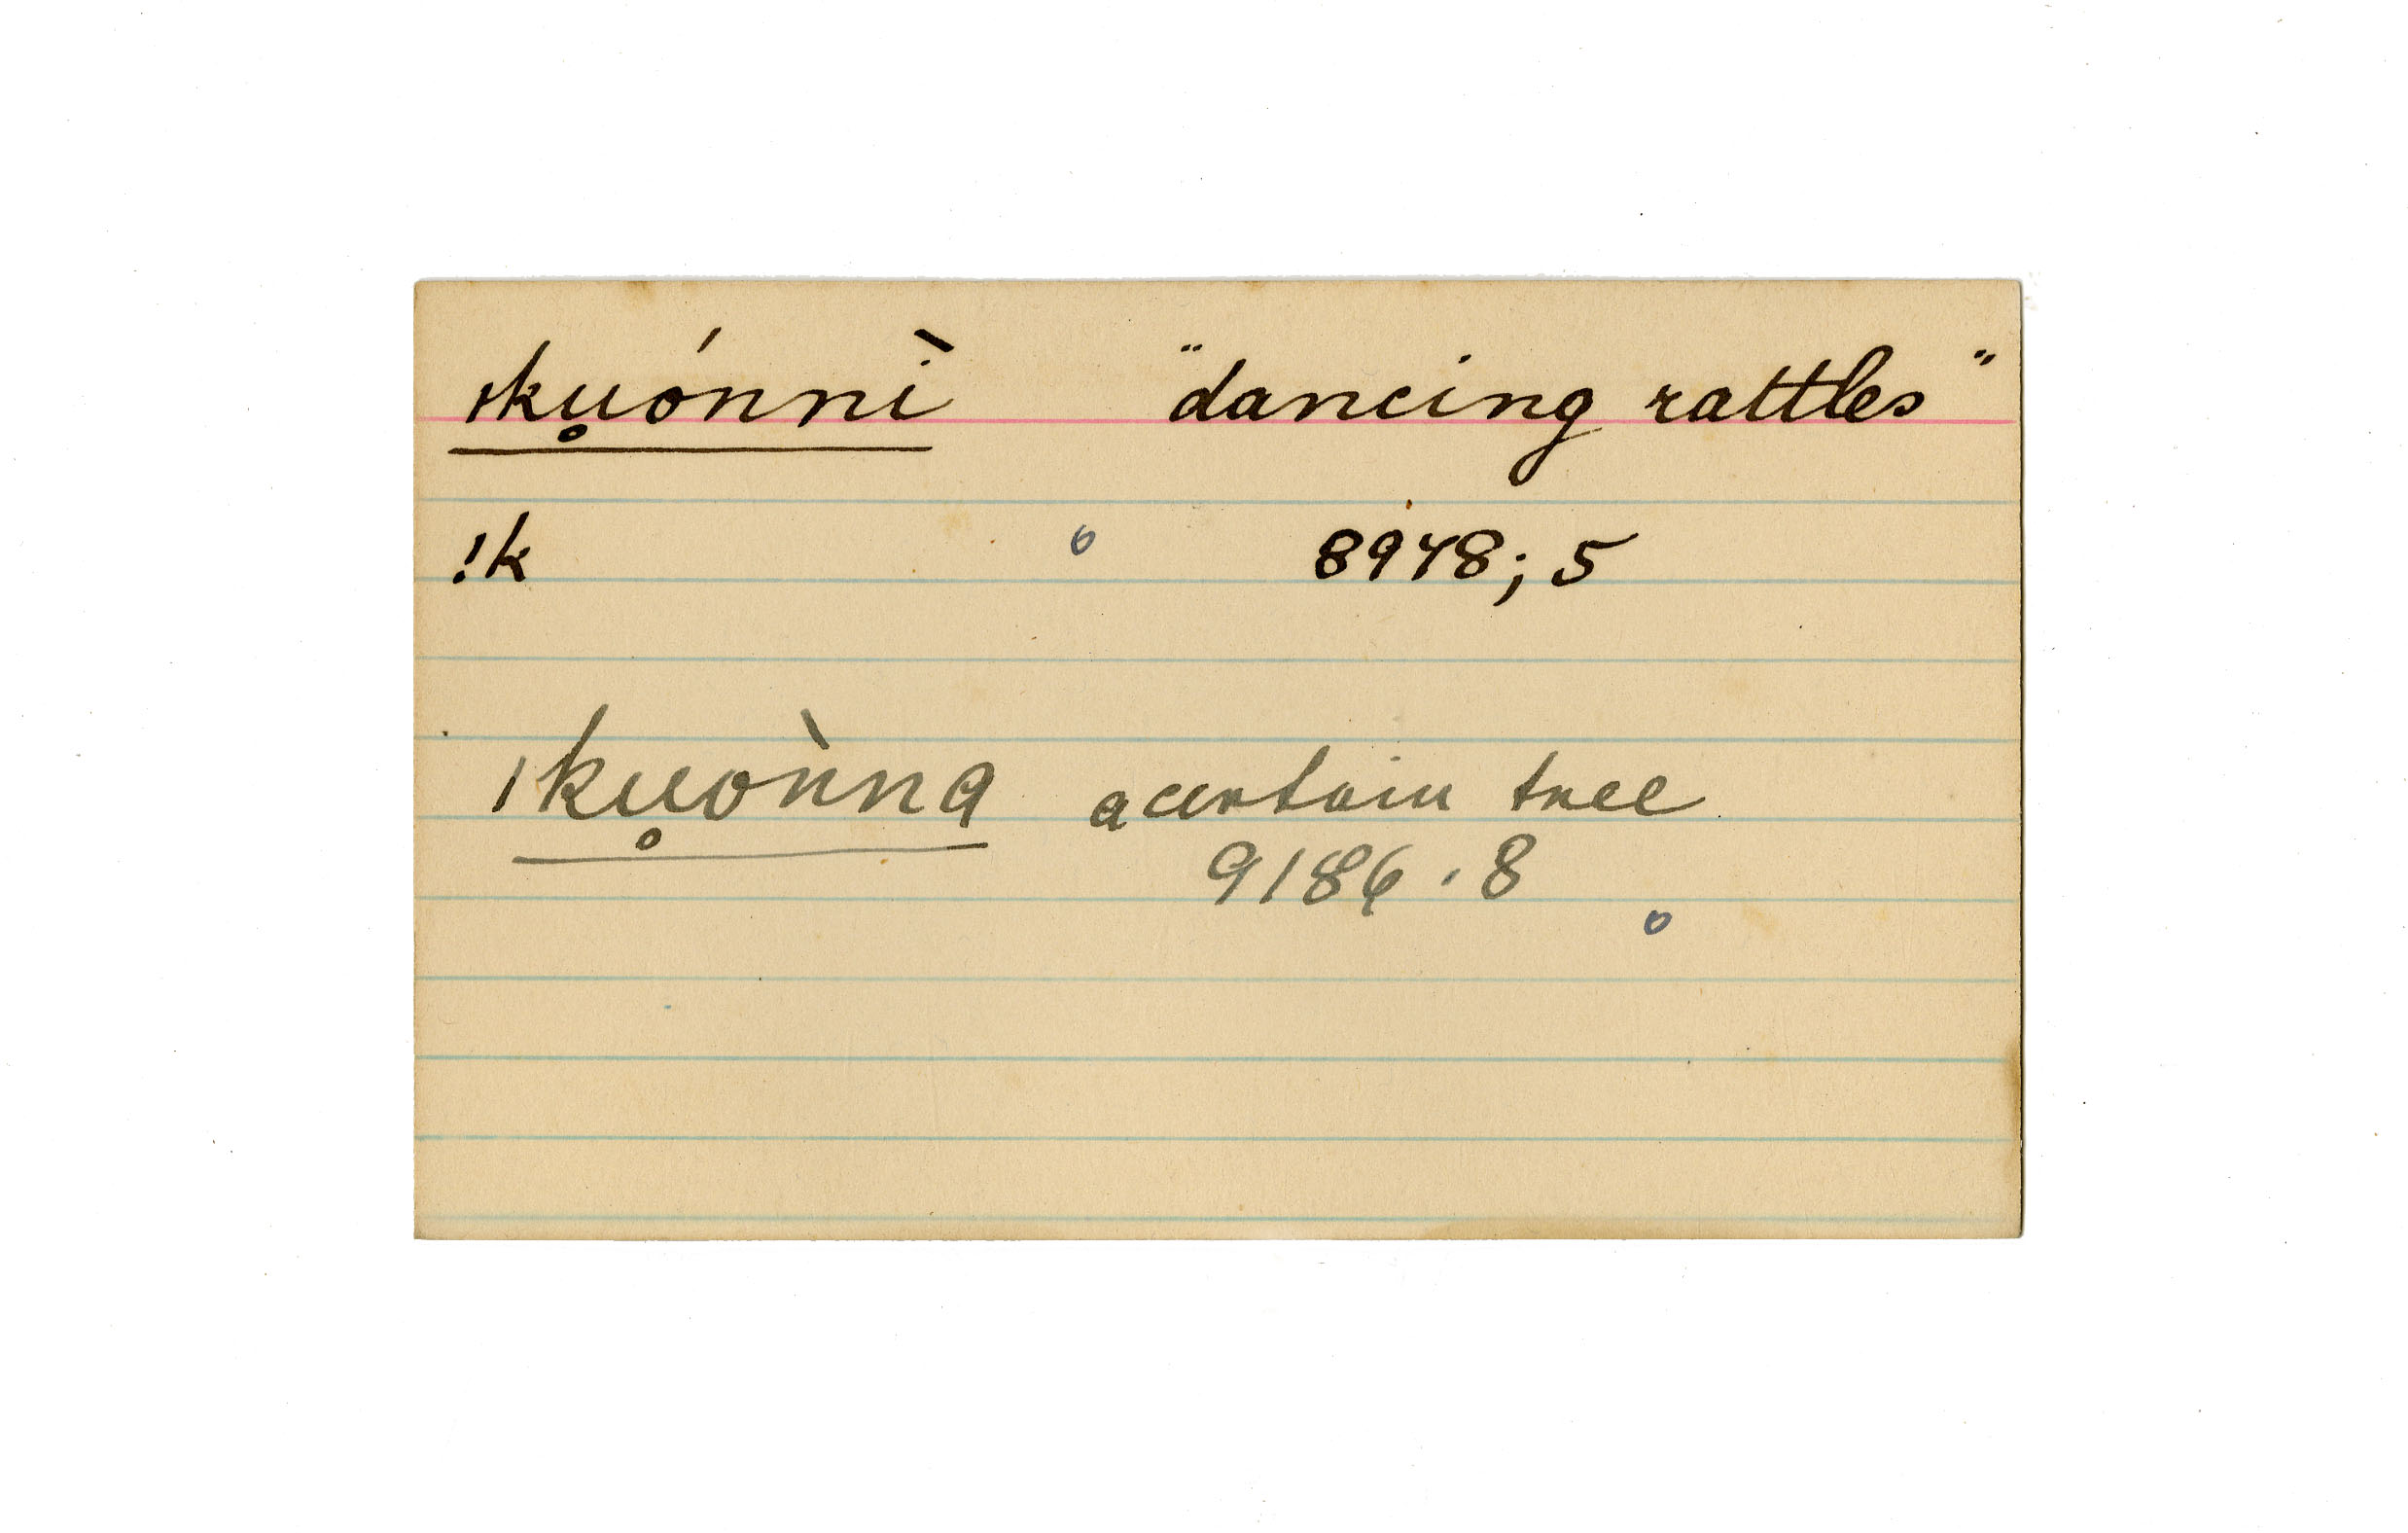 ıku̥ónnì "dancing rattles"
!k 8948; 5
ıku̥ònna a certain tree
9186 . 8